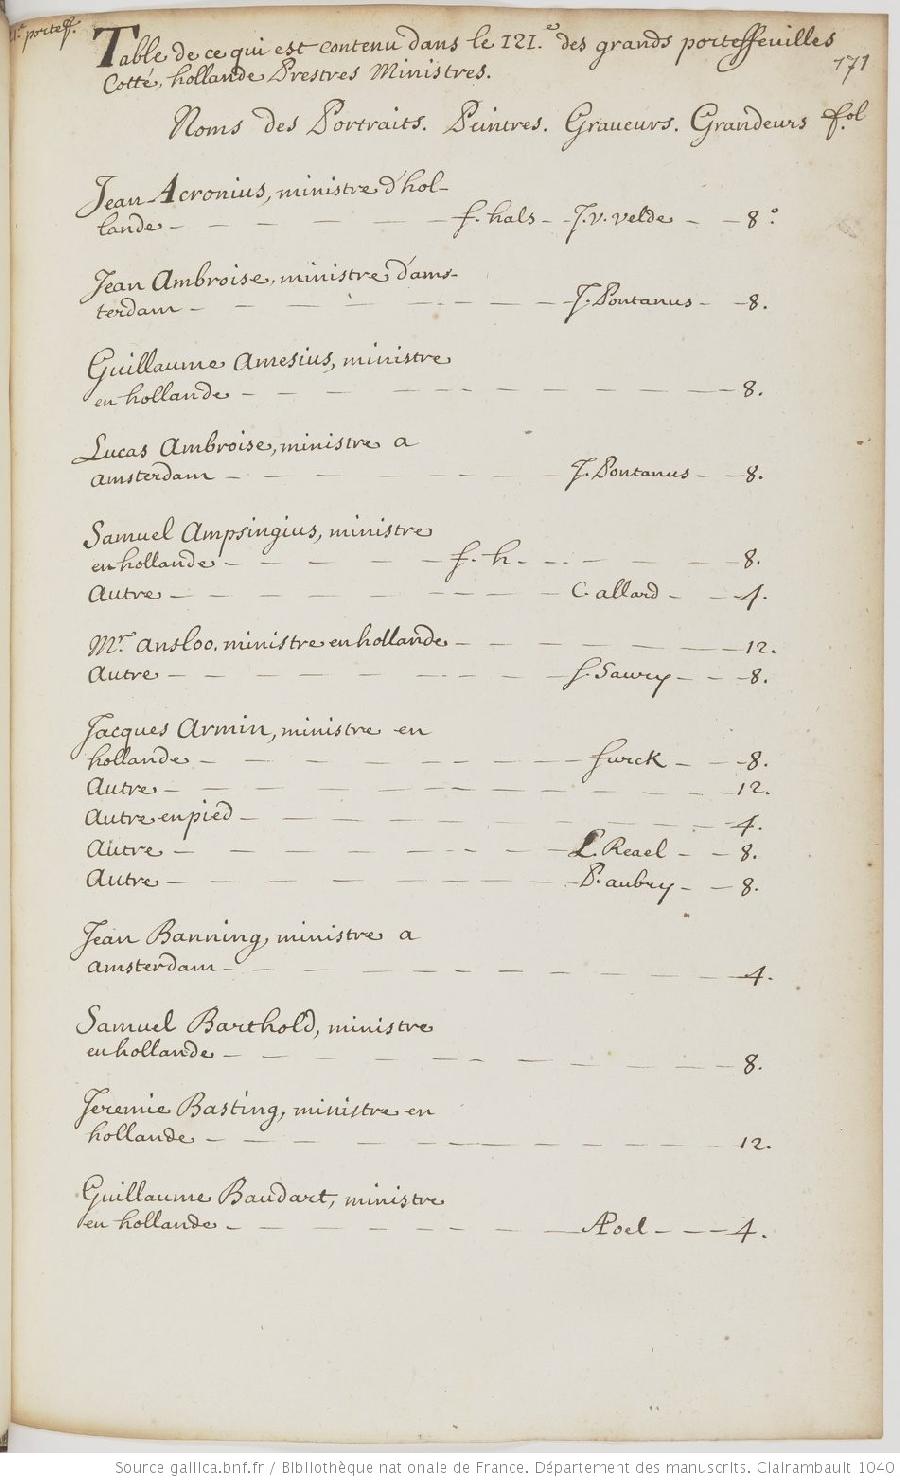 portef.
Table de ce qui est contenu dans le 121.e des grands porteffeuilles
171
Cotté, hollande Prestres Ministres.
Noms des Portraits. Peintres. Graveurs. Grandeurs fol
Jean Acronius, ministre d'hol-
lande - f. hals - J. v. velde - 8.o
Jean Ambroise, ministre d'ams-
terdam - J. Pontanus - 8.
Guillaume Amesius, ministre
en hollande - 8.
Lucas Ambroise, ministre a
amsterdam - J. Pontanus - 8.
Samuel Ampsingius, ministre
en hollande - f. h. - 8.
Autre - C. allard - 4.
Mr. ansloo. ministre en hollande - 12.
Autre - S. Savry - 8.
Jacques Armin, ministre en
hollande - surck - 8.
Autre - 12.
Autre en pied - 4.
Autre - L. Reael - 8.
Autre - P. aubry - 8.
Jean Banning, ministre a
amsterdam - 4.
Samuel Barthold, ministre
en hollande - 8.
Jeremie Basting, ministre en
hollande - 12.
Guillaume Baudart, ministre
en hollande - APoel - 4.
Source gallica.bnf.fr / Bibliothèque nationale de France. Département des manuscrits. Clairambault 1040